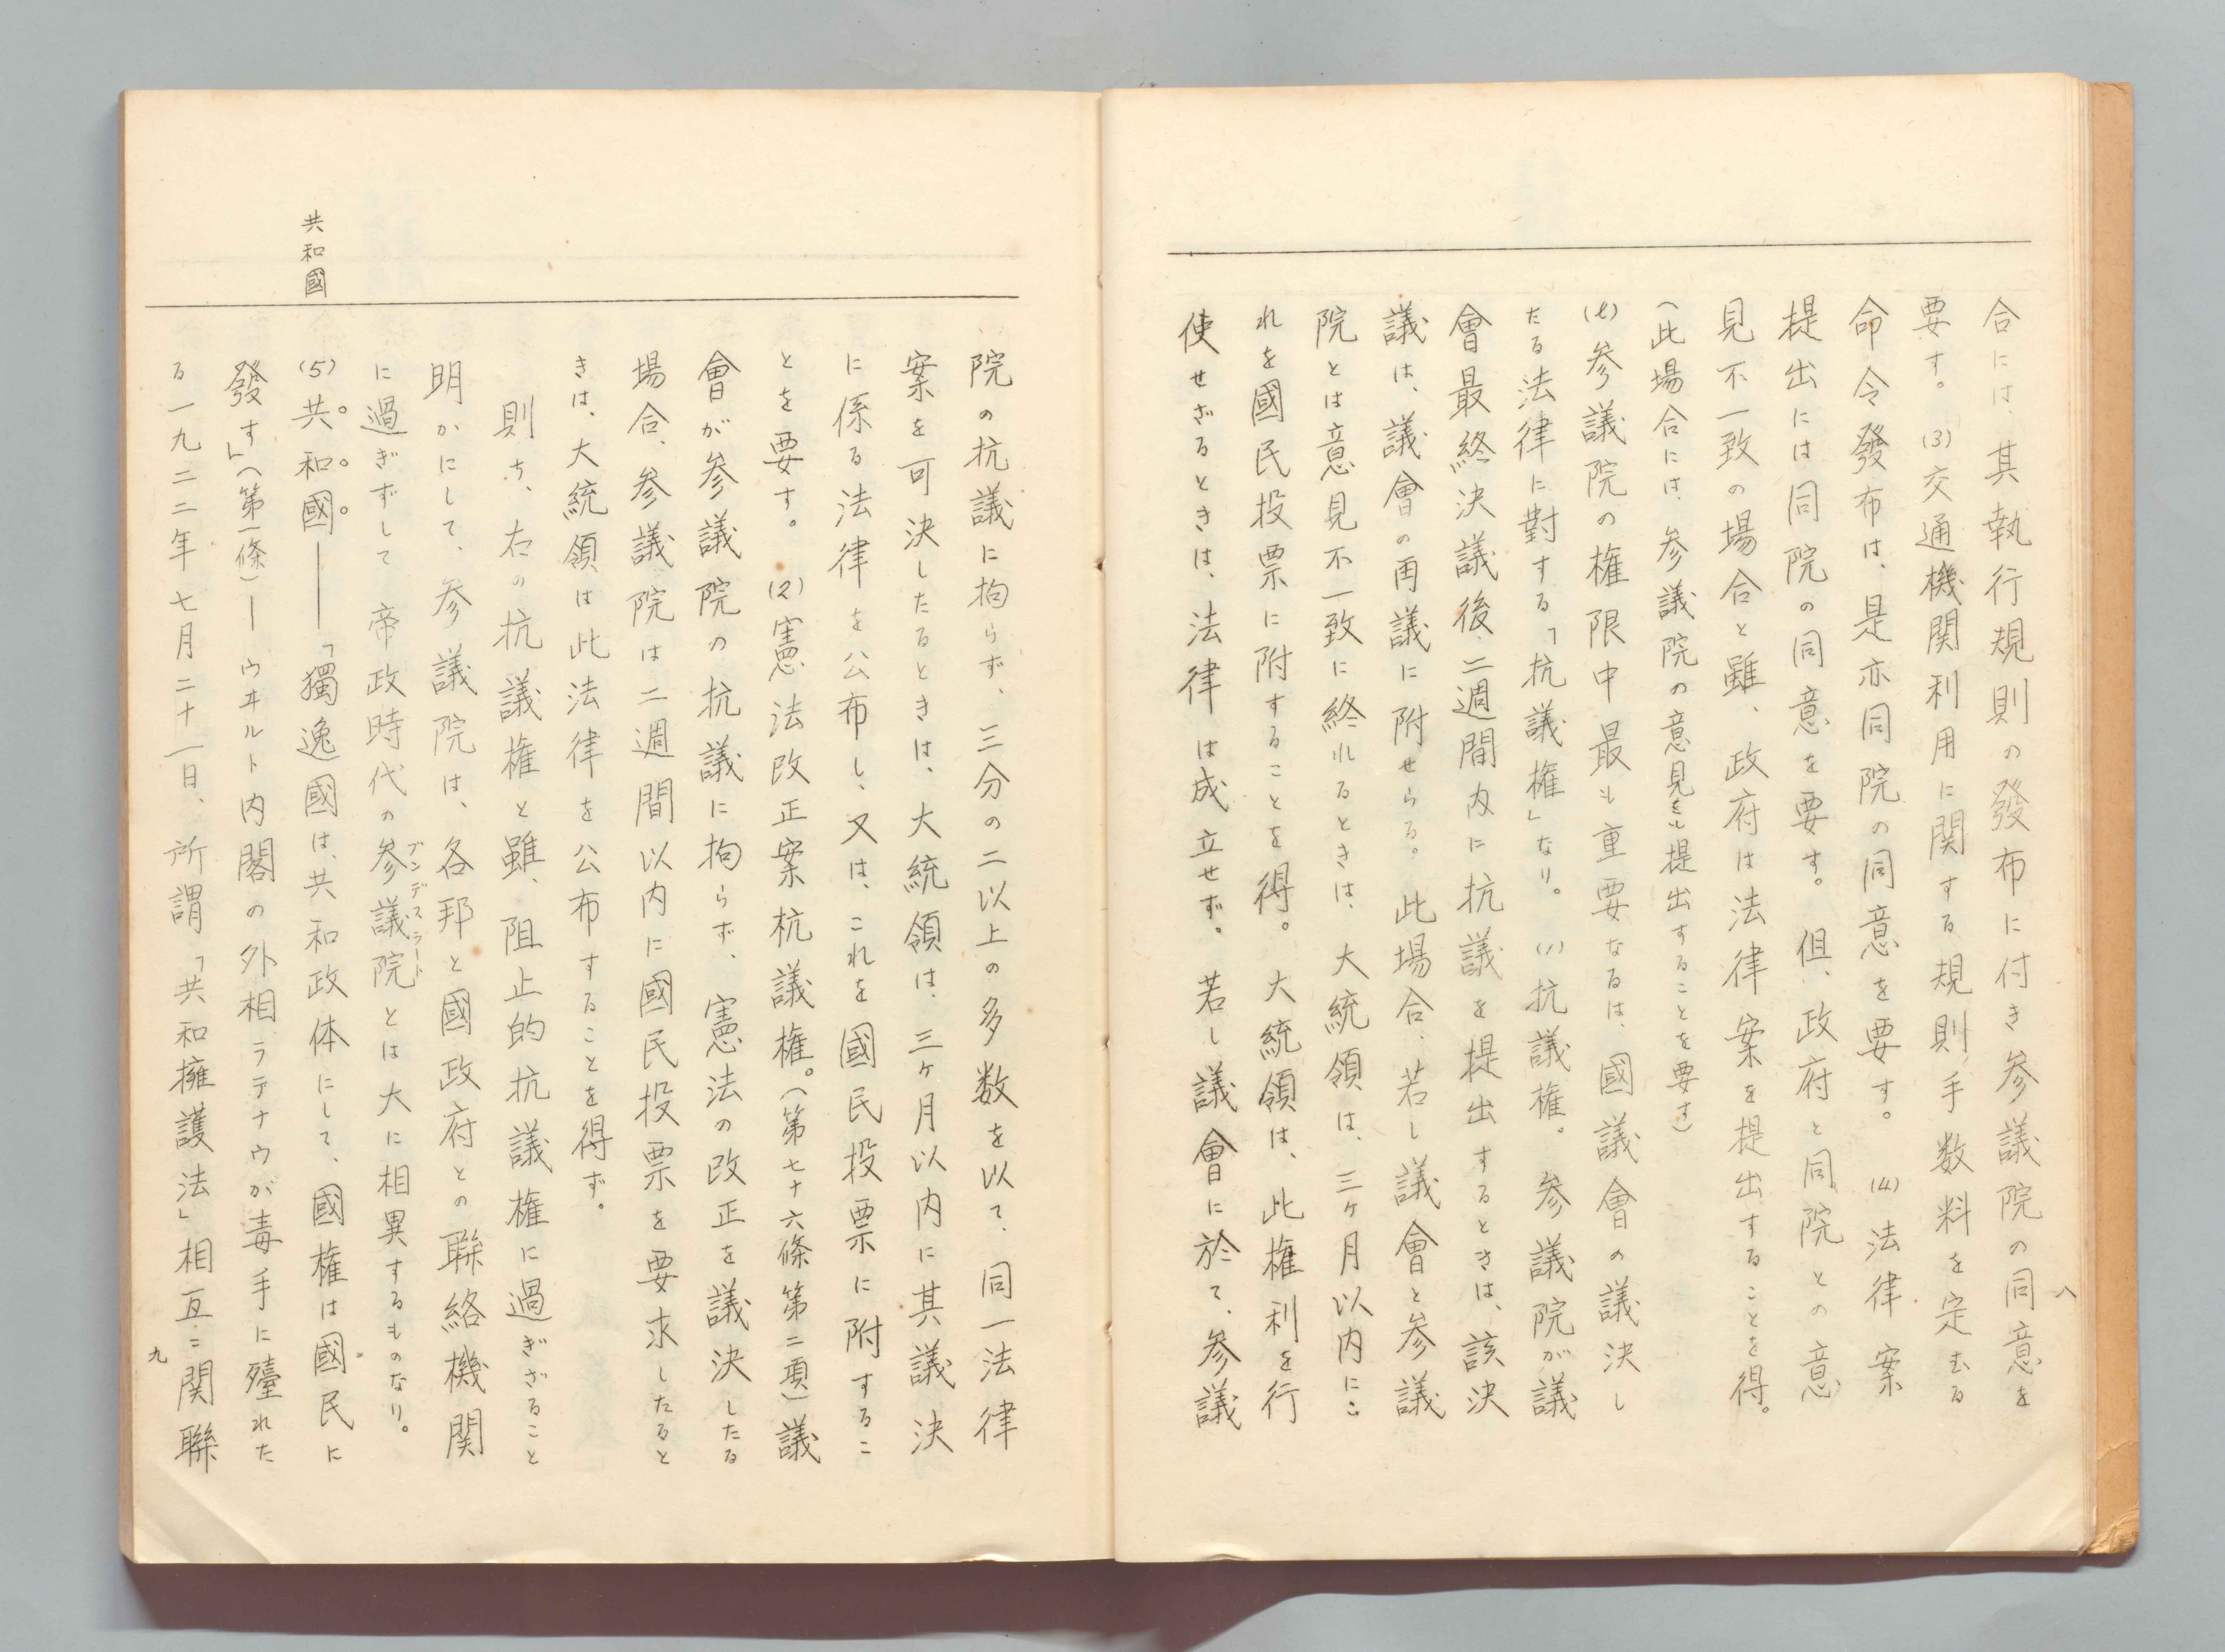 合には、其執行規則の發布に付き参議院の同意を
要す。(3)交通機関利用に関する規則手数料を定むる
命令發布は、是亦同院の同意を要す。(4)法律案
提出には同院の同意を要す。但、政府と同院との意
見不一致の場合と雖、政府は法律案を提出することを得。
(此場合には、参議院の意見をも提出することを要す)
(ℓ)参議院の権限中最も重要なるは、國議會の議決し
たる法律に對する「抗議権」なり。(1)抗議権。参議院が議
會最終決議後二週間内に抗議を提出するときは、該決
議は、議會の再議に附せらる。此場合、若し議會と参議
院とは意見不一致に終れるときは、大統領は、三ヶ月以内にこ
れを國民投票に附することを得。大統領は、此権利を行
使せざるときは、法律は成立せず。若し議會に於て、参議
八
院の抗議に拘らず、三分の二以上の多数を以て、同一法律
案を可決したるときは、大統領は、三ヶ月以内に其議決
に係る法律を公布し、又は、これを國民投票に附するこ
とを要す。(2)憲法改正案抗議権。(第七十六條第二項)議
會が参議院の抗議に拘らず、憲法の改正を議決したる
場合、参議院は二週間以内に國民投票を要求したると
きは、大統領は此法律を公布することを得ず。
則ち、右の抗議権と雖、阻止的抗議権に過ぎざること
明かにして、参議院は、各邦と國政府との聯絡機関
に過ぎずして帝政時代の参議院とは大に相異するものなり。
ブンデスラート
共和國
(5)共和國――「獨逸國は、共和政体にして、國権は國民に
發す」(第一條)―ウヰルト内閣の外相ラテナウが毒手に殪れた
る一九二二年七月二十一日、所謂「共和擁護法」相互ニ関聯
九